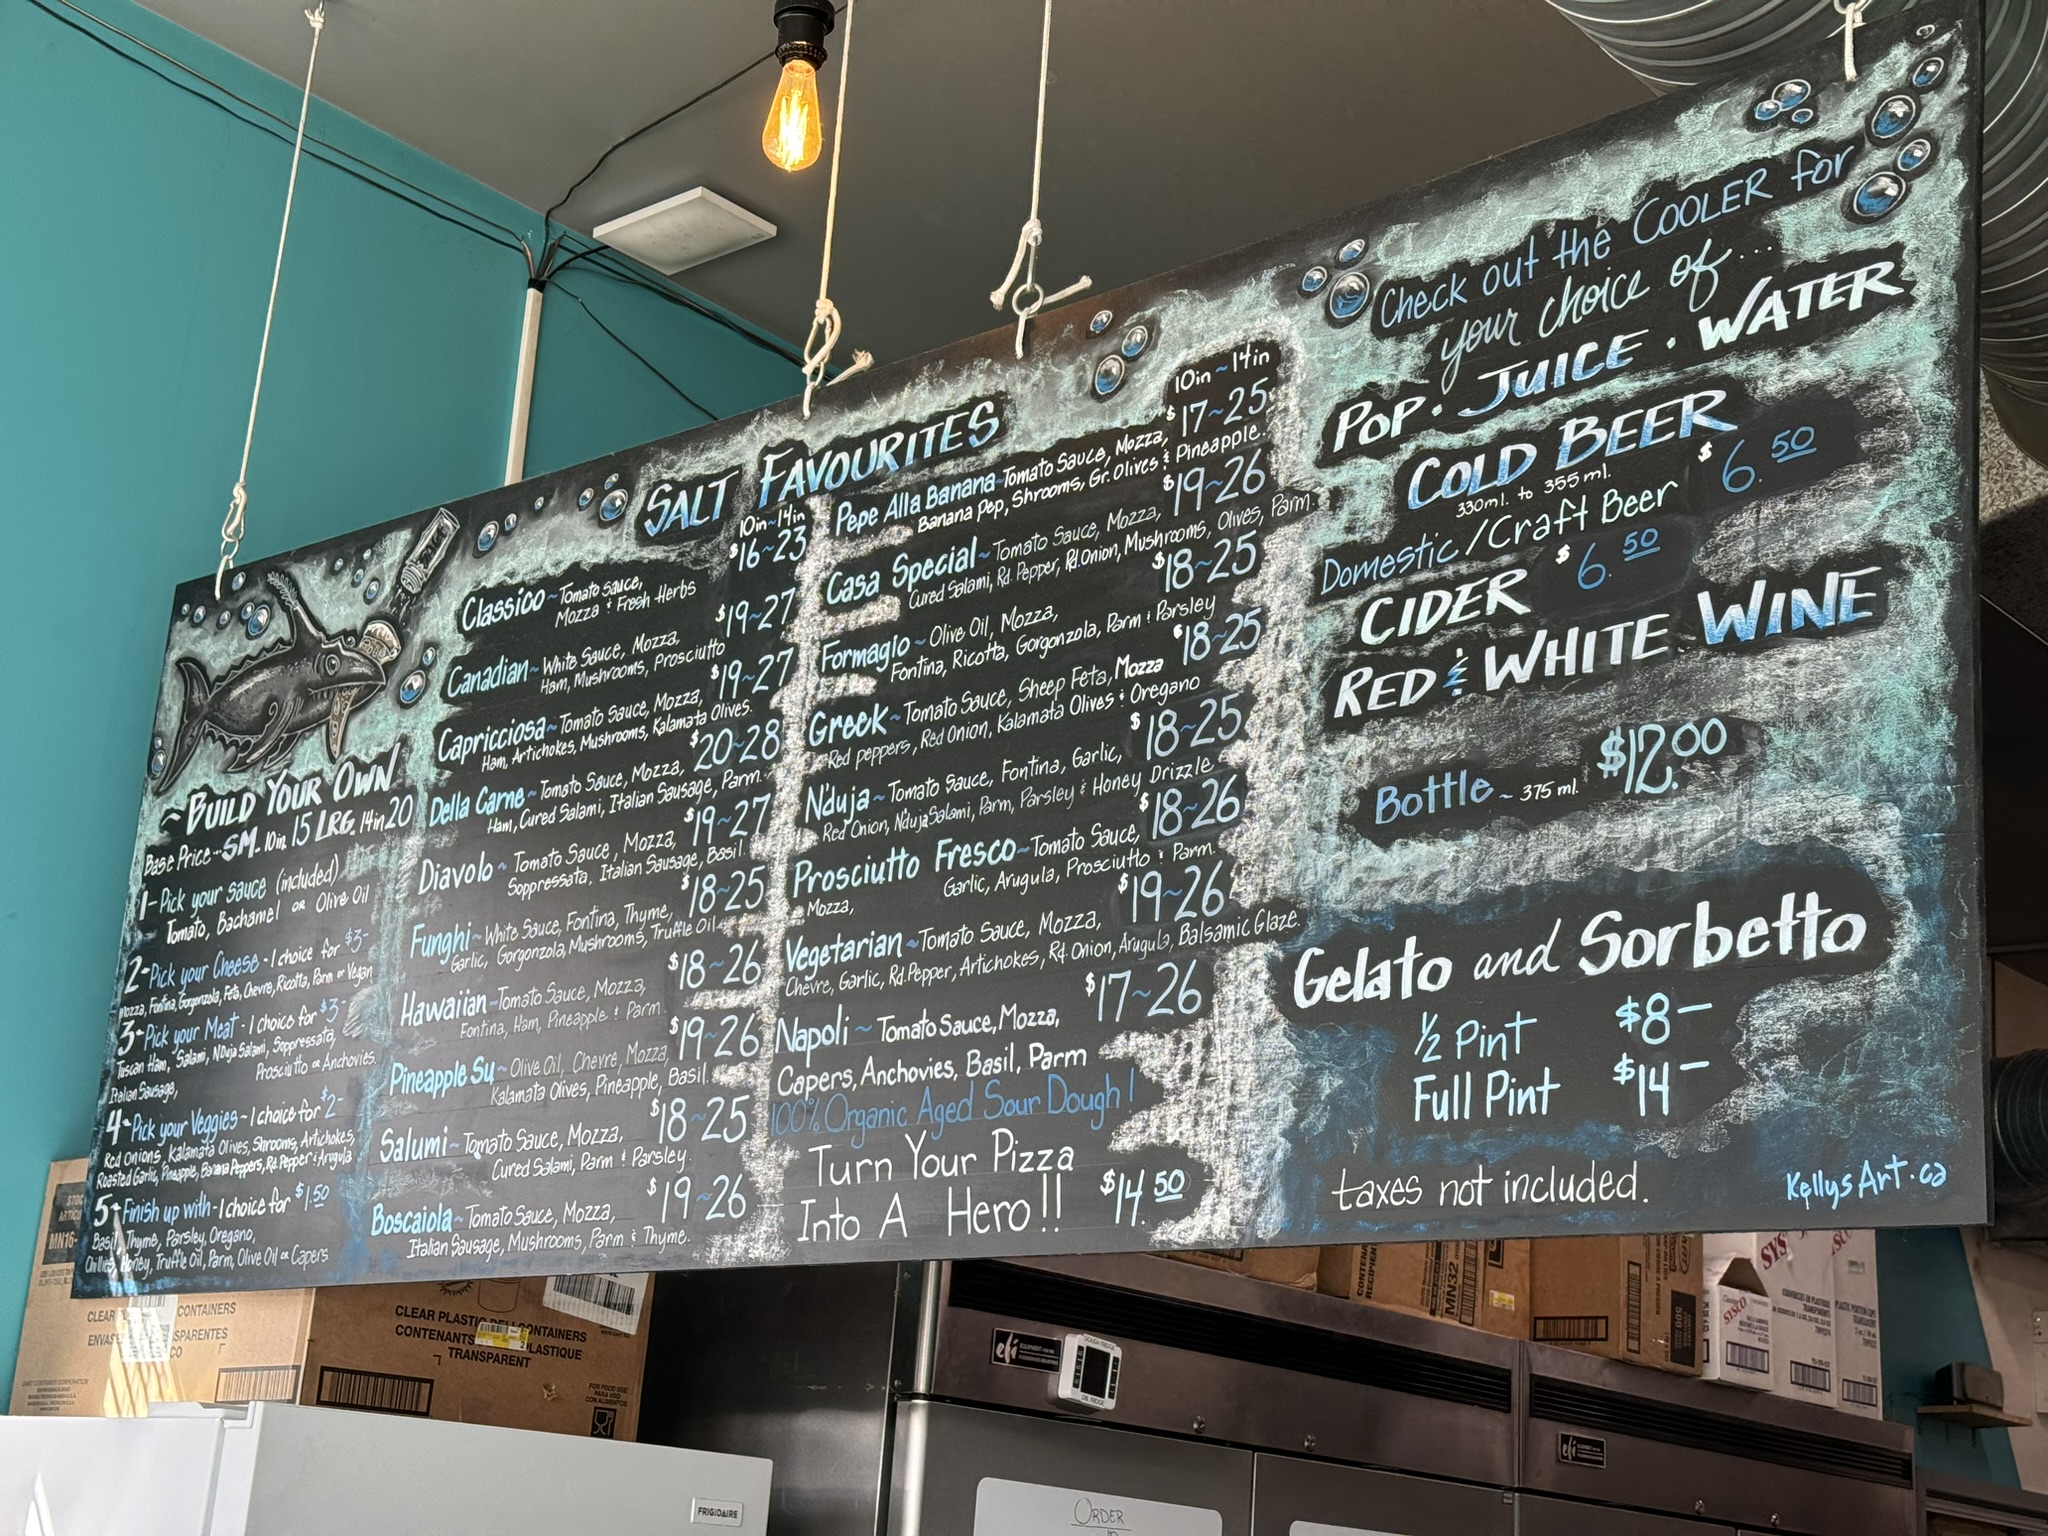 SALT FAVOURITES
~BUILD YOUR OWN
Base Price~ SM. 10in. 15 LRG. 14in 20
1~Pick your sauce (included)
Tomato, Bachamel or Olive Oil
2~Pick your Cheese ~ 1 choice for $3-
Mozza, Fontina, Gorgonzola, Feta, Chevre, Ricotta, Parm or Vegan
3~Pick your Meat ~ 1 choice for $3-
Tuscan Ham, Salami, NDuja Salami, Soppressata,
Italian Sausage, Prosciutto or Anchovies.
4~Pick your Veggies ~ 1 choice for $2-
Red Onions, Kalamata Olives, Shrooms, Artichokes,
Roasted Garlic, Pineapple, Banana Peppers, Rd. Pepper & Arugula
5~Finish up with ~ 1 choice for $1.50
Basil, Thyme, Parsley, Oregano,
Chilies, Honey, Truffle Oil, Parm, Olive Oil or Capers
10in~14in
Classico~Tomato Sauce, $16~23
Mozza & Fresh Herbs
Canadian~White Sauce, Mozza, $19~27
Ham, Mushrooms, Prosciutto
Capricciosa~Tomato Sauce, Mozza, $19~27
Ham, Artichokes, Mushrooms, Kalamata Olives.
Della Carne~Tomato Sauce, Mozza, $20~28
Ham, Cured Salami, Italian Sausage, Parm.
Diavolo~Tomato Sauce, Mozza, $19~27
Soppressata, Italian Sausage, Basil.
Funghi~White Sauce, Fontina, Thyme, $18~25
Garlic, Gorgonzola, Mushrooms, Truffle Oil
Hawaiian~Tomato Sauce, Mozza, $18~26
Fontina, Ham, Pineapple & Parm
Pineapple Su~Olive Oil, Chevre, Mozza, $19~26
Kalamata Olives, Pineapple, Basil.
Salumi~Tomato Sauce, Mozza, $18~25
Cured Salami, Parm & Parsley.
Boscaiola~Tomato Sauce, Mozza, $19~26
Italian Sausage, Mushrooms, Parm & Thyme.
10in~14in
Pepe Alla Banana~Tomato Sauce, Mozza, $17~25
Banana Pep, Shrooms, Gr. Olives & Pineapple.
Casa Special~Tomato Sauce, Mozza, $19~26
Cured Salami, Rd. Pepper, Rd. Onion, Mushrooms, Olives, Parm.
Formagio~Olive Oil, Mozza, $18~25
Fontina, Ricotta, Gorgonzola, Parm & Parsley
Greek~Tomato Sauce, Sheep Feta, Mozza $18~25
Red peppers, Red Onion, Kalamata Olives & Oregano
N'duja~Tomato Sauce, Fontina, Garlic, $18~25
Red Onion, N'Duja Salami, Parm, Parsley & Honey Drizzle
Prosciutto Fresco~Tomato Sauce, $18~26
Mozza, Garlic, Arugula, Prosciutto & Parm
Vegetarian~Tomato Sauce, Mozza, $19~26
Chevre, Garlic, Rd. Pepper, Artichokes, Rd. Onion, Arugula, Balsamic Glaze.
Napoli ~ Tomato Sauce, Mozza, $17~26
Capers, Anchovies, Basil, Parm
100% Organic Aged Sour Dough!
Turn Your Pizza
Into A Hero!! $14.50
Check out the COOLER for
your choice of...
POP · JUICE · WATER
COLD BEER
330ml. to 355ml.
Domestic/Craft Beer $6.50
CIDER $6.50
RED & WHITE WINE
Bottle ~ 375 ml. $12.00
Gelato and Sorbetto
1/2 Pint $8—
Full Pint $14—
taxes not included.
KellysArt.ca
CLEAR PLASTIC DELI CONTAINERS
CONTENANTS PLASTIQUE
TRANSPARENT
FOR FOOD USE
MN32
SYSCO
efi
efi
DOUGH FRIDGE
FRIGIDAIRE
ORDER